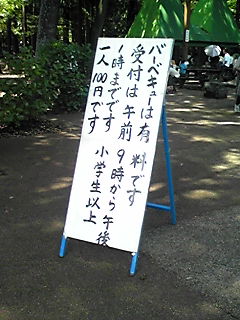 バーベキューは有料です
受付は午前9時から午後
1時までです 小学生以上
一人100円です